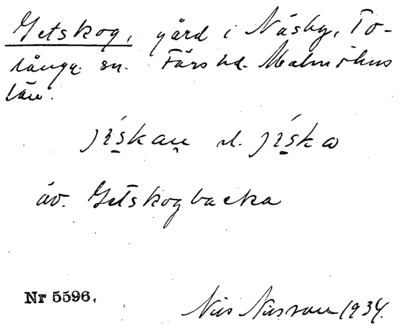 Getskog, gård i Näsby, To-
långa sn. Färs hd. Malmöhus
län.
jɪ̄skan el. jɪ̄ska
äv. Getskogbacka
Nr 5596. Nils Nilsson 1934.